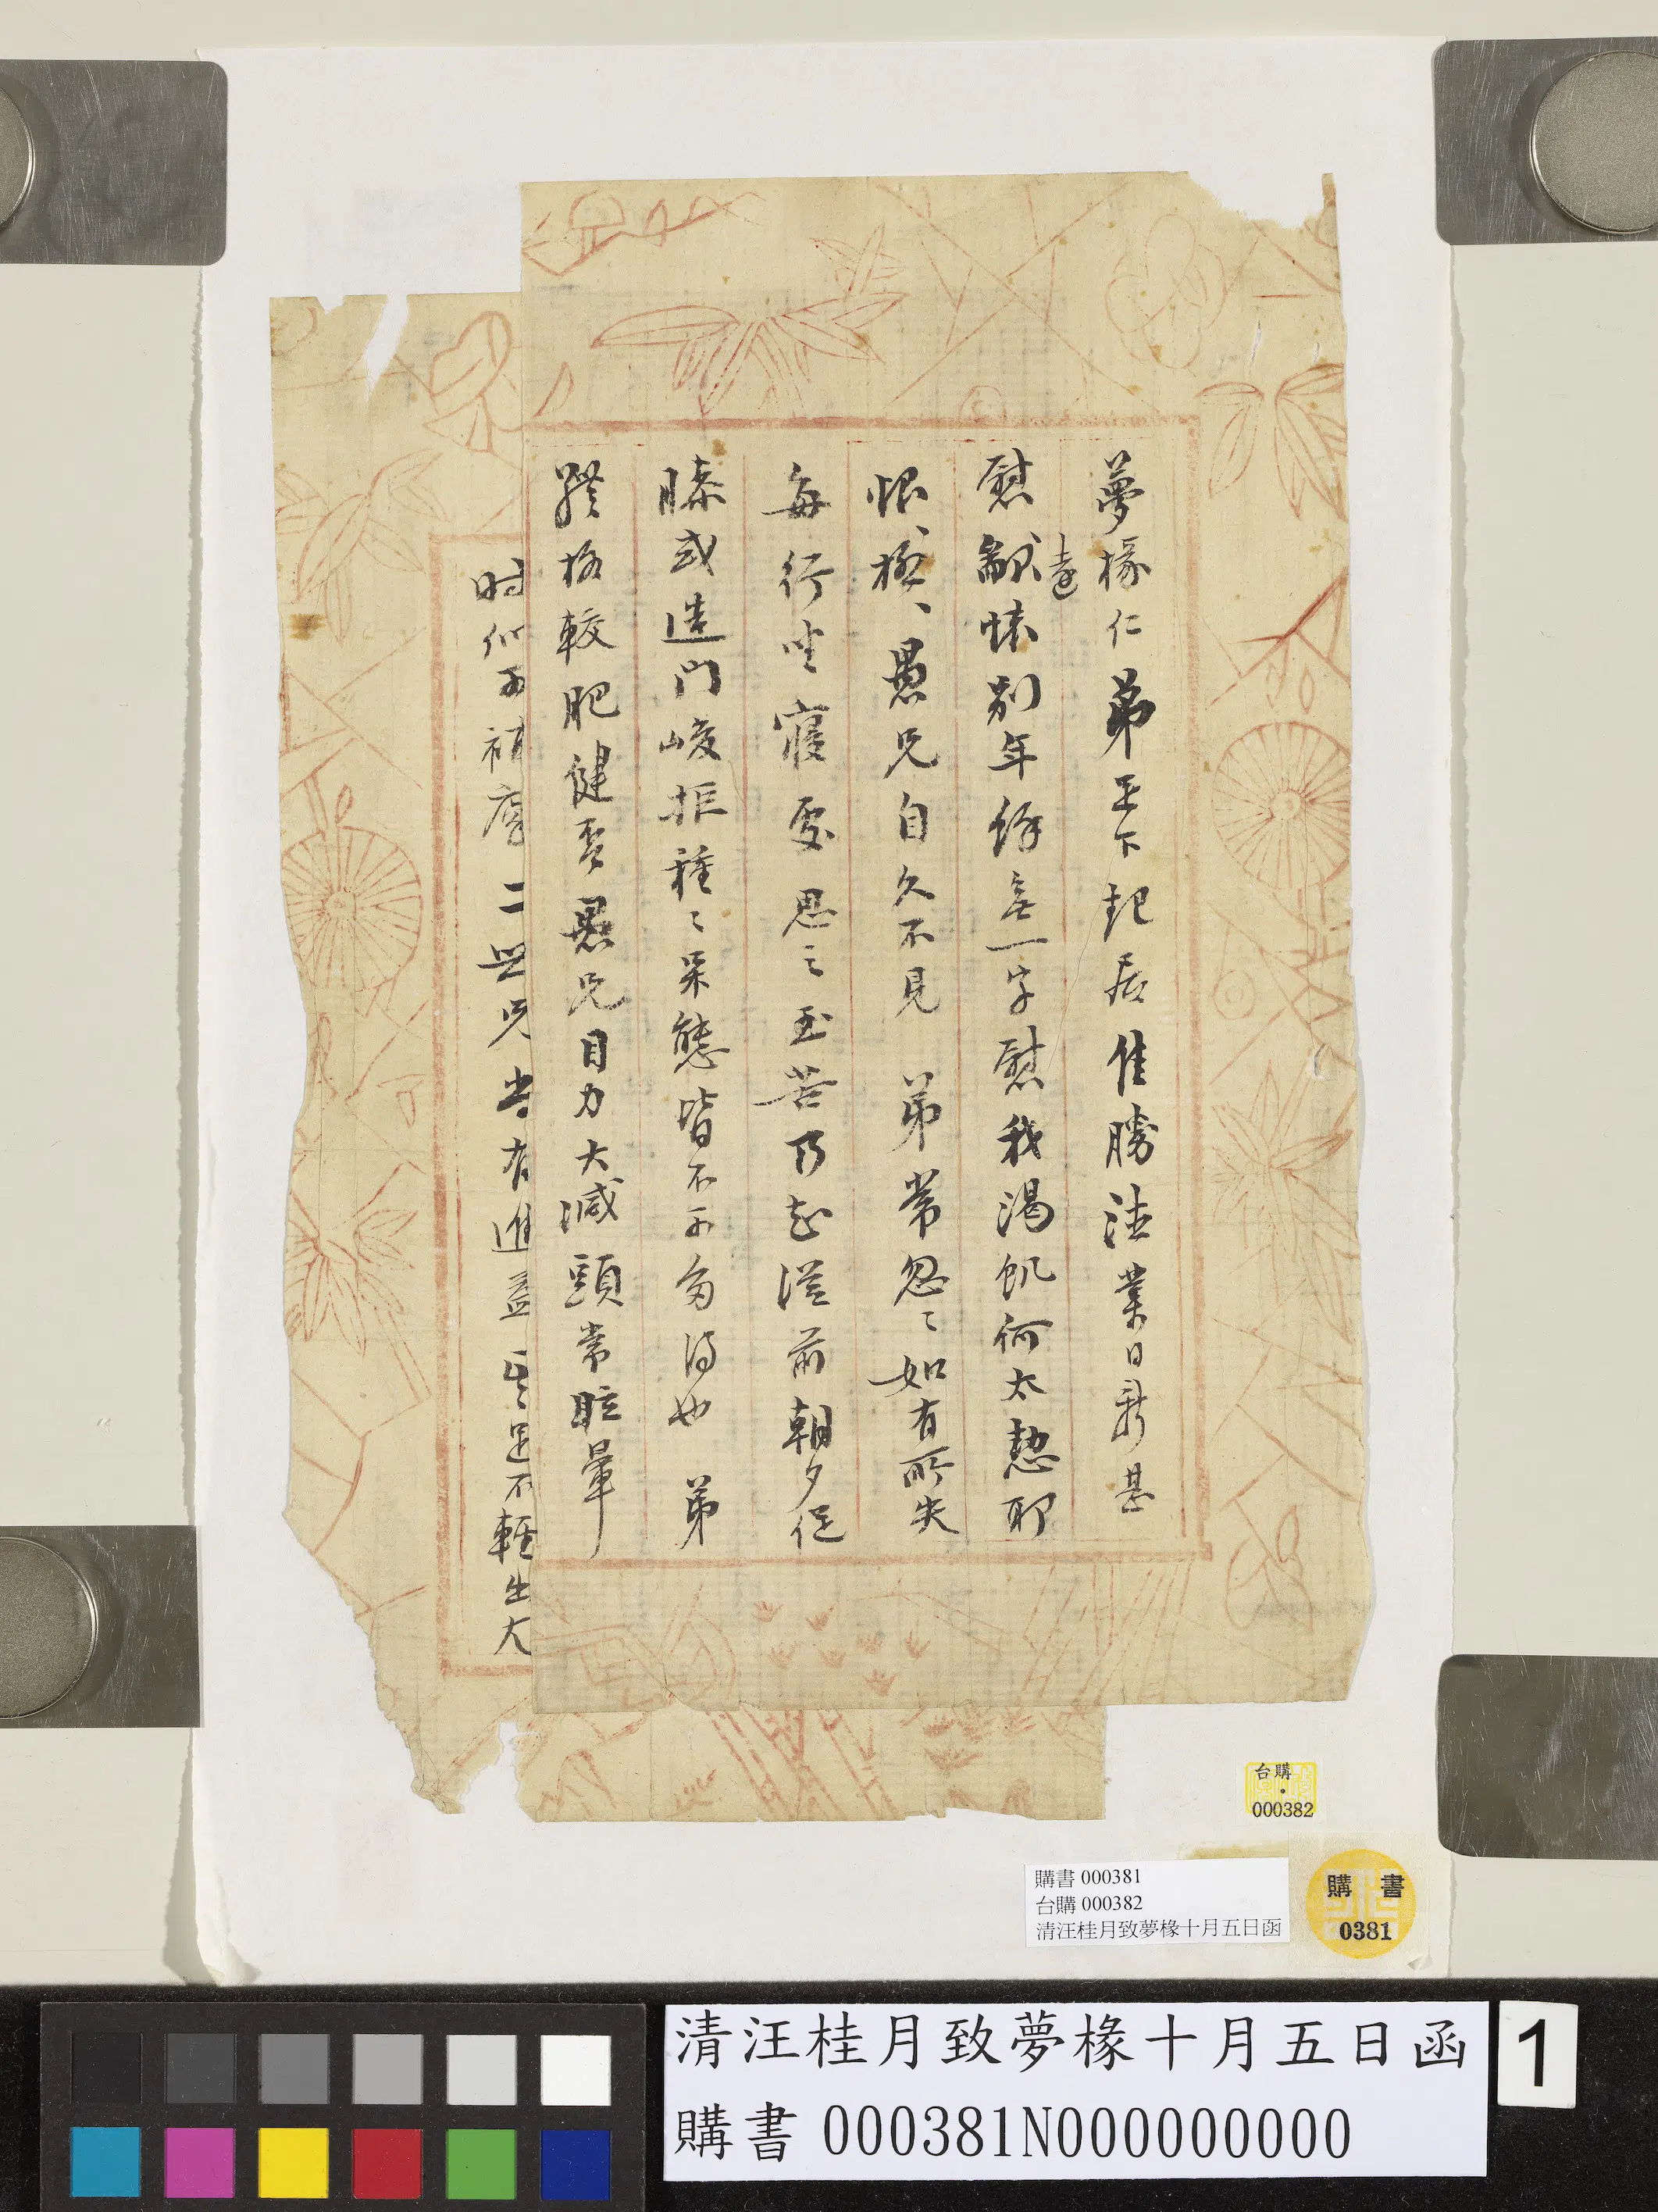 夢椽仁弟王下起居佳勝法業日新甚
慰㱃遠愫別年餘無一字慰我渴飢何太慙耶
恨、極、愚兄自久不見 弟常忽〻如有所失
每行坐寢處思之至苦乃知從前朝夕促
膝或造門峻拒種〻呆態皆不可多得也 弟
體格較肥健否愚兄目力大減頭常眩暈
時作不
二世兄尚有進益
足不輕出大
台購
000382
購書 000381
台購 000382
清汪桂月致夢椽十月五日函
購書
0381
清汪桂月致夢椽十月五日函
購書 000381N000000000
1